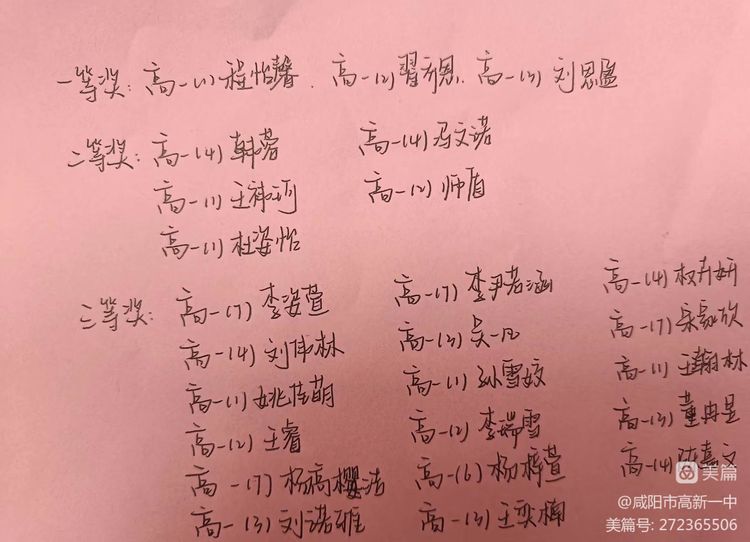 一等奖: 高一(1) 程怡馨. 高一(2) 翟弈恩. 高一(3) 刘思盈
二等奖: 高一(4) 韩蓉 高一(4) 冯文诺
高一(1) 王祎珂 高一(2) 师盾
高一(1) 杜姿怡
三等奖: 高一(7) 李姿萱 高一(7) 李尹若涵 高一(4) 权卉妍
高一(4) 刘伟林 高一(3) 吴一凡 高一(7) 宋淼欣
高一(1) 姚佳萌 高一(1) 孙雪姣 高一(1) 王翰林
高一(2) 王睿 高一(2) 李瑞雪 高一(3) 董冉昱
高一(7) 杨高樱洁 高一(6) 杨梓萱 高一(4) 嘉文
高一(3) 刘诺雅 高一(3) 王奕楠
美篇
@咸阳市高新一中
美篇号: 272365506